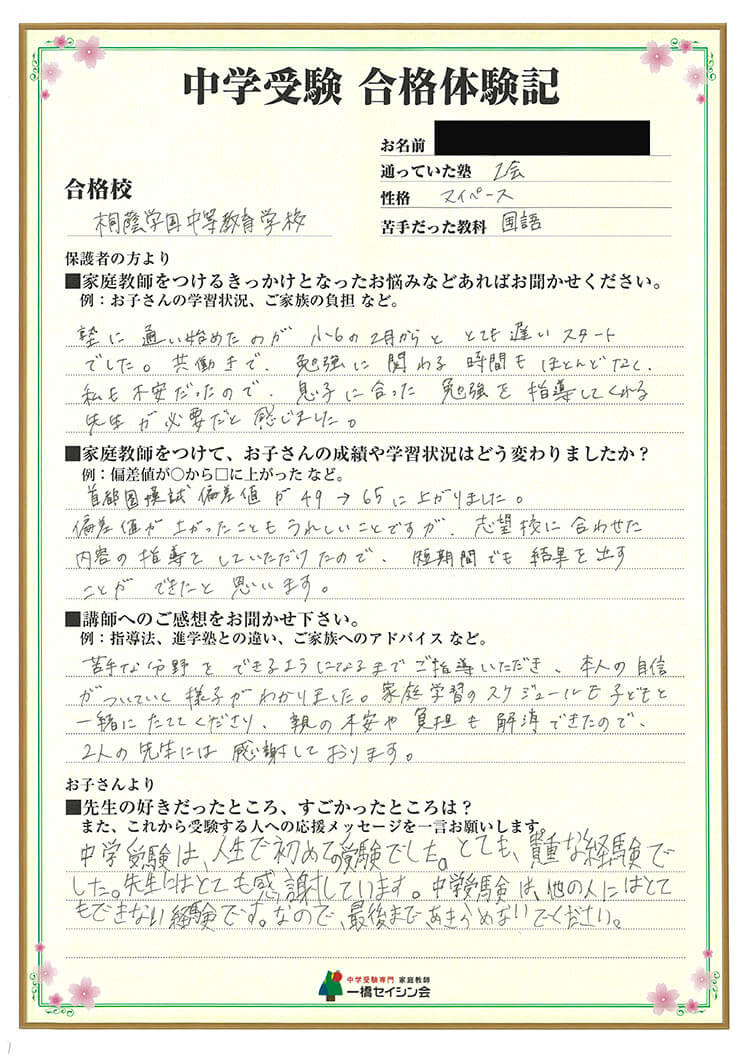 中学受験 合格体験記
お名前
通っていた塾 Z会
合格校
性格 マイペース
桐蔭学園中等教育学校
苦手だった教科 国語
保護者の方より
■家庭教師をつけるきっかけとなったお悩みなどあればお聞かせください。
例：お子さんの学習状況、ご家族の負担 など。
塾に通い始めたのが小6の2月からととても遅いスタート
でした。共働きで、勉強に関わる時間もほとんどなく、
私も不安だったので、息子に合った勉強を指導してくれる
先生が必要だと感じました。
■家庭教師をつけて、お子さんの成績や学習状況はどう変わりましたか？
例：偏差値が○から□に上がった など。
首都圏模試偏差値が49→65に上がりました。
偏差値が上がったこともうれしいことですが、志望校に合わせた
内容の指導をしていただけたので、短期間でも結果を出す
ことができたと思います。
■講師へのご感想をお聞かせ下さい。
例：指導法、進学塾との違い、ご家族へのアドバイス など。
苦手な分野をできるようになるまでご指導いただき、本人の自信
がついていく様子がわかりました。家庭学習のスケジュールも子どもと
一緒にたててくださり、親の不安や負担も解消できたので、
2人の先生には感謝しております。
お子さんより
■先生の好きだったところ、すごかったところは？
また、これから受験する人への応援メッセージを一言お願いします
中学受験は、人生で初めての受験でした。とても、貴重な経験で
した。先生にはとても感謝しています。中学受験は、他の人にはとて
もできない経験です。なので、最後まであきらめないでください。
中学受験専門 家庭教師
一橋セイシン会